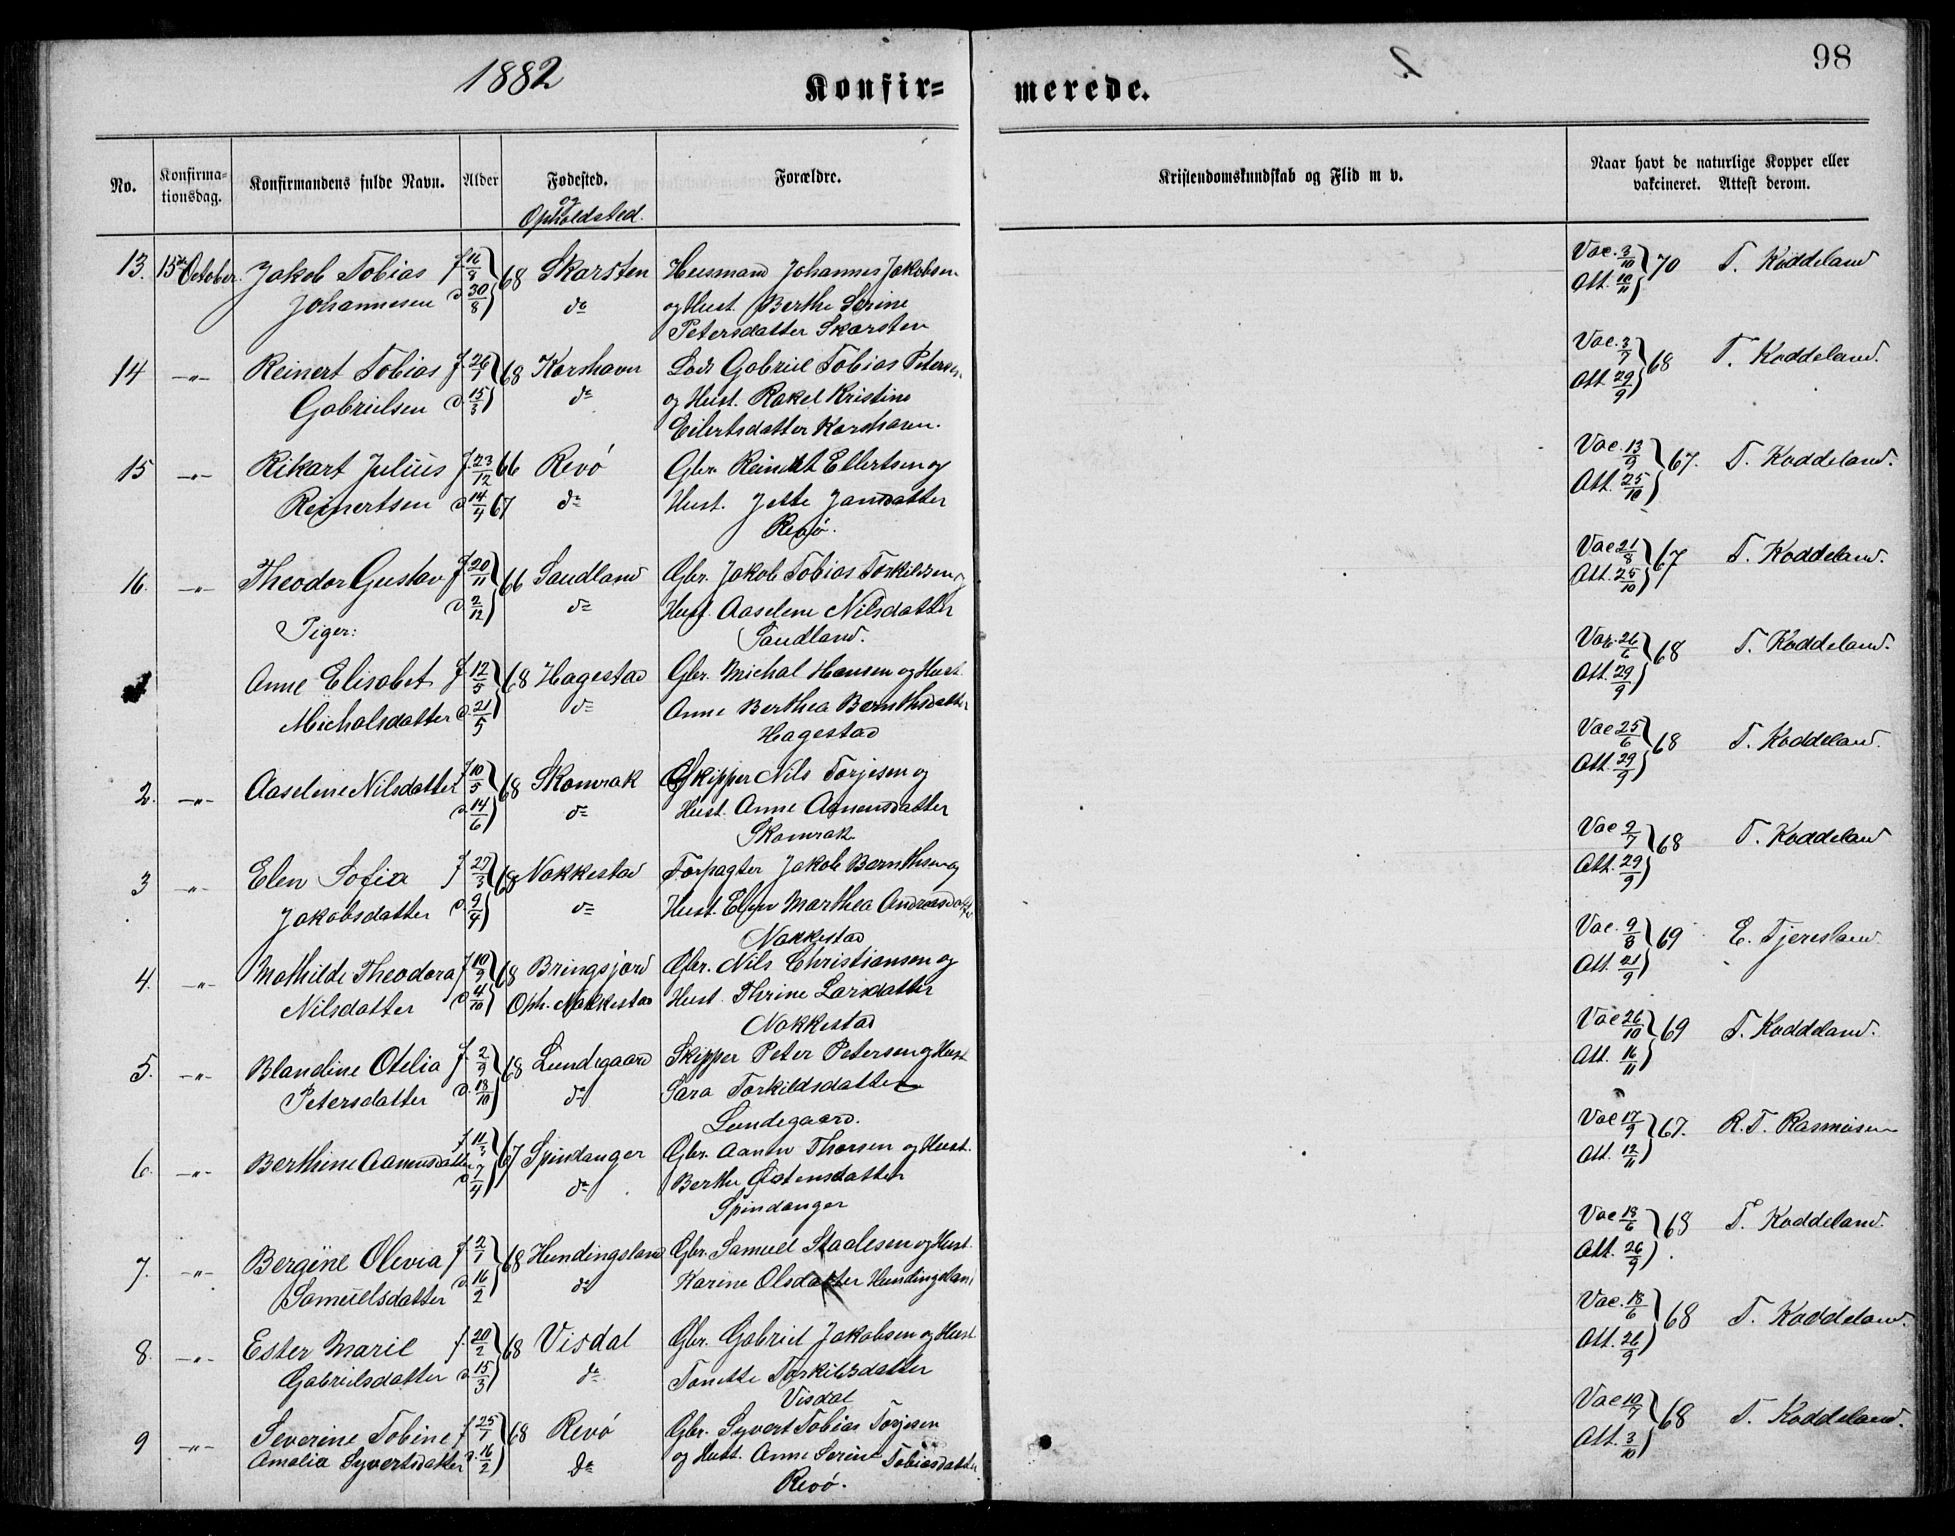 1882
Konfir=
merede.
98
No.
Konfirma-
tionsdag.
Konfirmandens fulde Navn.
Alder
Fødested.
og
Opholdsted.
Forældre.
Kristendomskundskab og Flid m v.
Naar havt de naturlige Kopper eller
vakcineret. Attest derom.
13. 15de October. Jakob Tobias f 16/8 68 Skarsten Husmand Johannes Jakobsen Vac. 3/10 70 T. Koddeland
Johannesen d 30/8 do og Hust. Berthe Serine Att. 10/11
Petersdatter Skarsten
14 -"- Reinert Tobias f. 26/1 68 Korshavn Lods Gabriel Tobias Petersen Vac. 3/7 68 T. Koddeland.
Gabrielsen d. 15/3 do og Hust. Rakel Kristine Att. 29/9
Eilertsdatter Korshavn.
15 -"- Rikart Julius f. 23/12 66 Revø Gbr. Reinert Ellertsen og Vac. 13/9 67. T. Koddeland.
Reinertsen d 14/4 67 do Hust. Jette Jansdatter Att. 25/10
Revø.
16. -"- Theodor Gustav f 20/11 66 Sandland Gbr. Jakob Tobias Torkildsen og Vac 21/8 67 T. Koddeland.
d 2/12 do Hust. Aaselene Nilsdatter Att. 25/10
Piger:
Sandland.
Anne Elisabet f 12/5 68 Hagestad Gbr. Michal Hansen og Hust. Vac. 26/6 68 T. Koddeland.
Michalsdatter d. 21/5 do Anne Berthea Bernthsdatter Att. 29/9
Hagestad
2. -"- Aaselene Nilsdatter f 10/5 68 Skomrak Skipper Nils Torjesen og Vac 25/6 68 T. Koddeland.
d. 14/6 do Hust. Anne Aanensdatter Att. 29/9
Skomrak
3 -"- Elen Sofia f 27/3 68 Nakkestad Forpagter Jakob Bernthsen og Vac 2/7 68 T. Koddeland
Jakobsdatter d 9/4 do Hust. Elen Marthea Andreasdatter Att. 29/9
Nakkestad
4. -"- Mathilde Theodora f 10/9 68 Bringsjord Gbr. Nils Christiansen og Vac. 9/8 69 E. Tjeresland.
Nilsdatter d 4/10 Oph. Nakkestad Hust. Thrine Larsdatter Att. 21/9
Nakkestad
5. -"- Blandine Otelia f. 2/9 68 Lundegaard Skipper Peter Petersen og Hust Vac 26/10 69 T. Koddeland.
Petersdatter d. 18/10 do Sara Torkildsdatter Att. 16/11
Lundegaard.
6. -"- Berthine Aanensdatter f. 11/3 67 Spindanger Gbr. Aanen Thorsen og Hust. Vac 17/9 67. R. T. Rasmusen
d. 7/4 do Berthe Østensdatter Att. 12/11
Spindanger
7. -"- Bergine Olevia f 2/1 68 Hundingsland Gbr. Samuel Staalesen og Hust. Vac 18/6 68 T. Koddeland.
Samuelsdatter d. 16/2 do Karine Olsdatter Hundingsland Att. 26/9
8. -"- Ester Marie f. 20/2 68 Visdal Gbr. Gabriel Jakobsen og Hust. Vac. 18/6 68 T. Koddeland.
Gabrielsdatter d. 15/3 do Tonette Torkildsdatter Att. 26/9
Visdal
9 -"- Severine Tobine f. 25/1 68 Revø Gbr. Syvert Tobias Torjesen Vac 10/7 68 T. Koddeland.
Amalia Syvertsdatter d. 16/2 do og Hust. Anne Serine Tobiasdatter Att. 3/10
Revø.